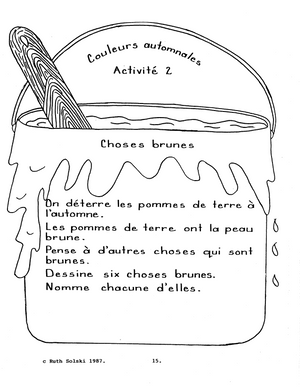 Couleurs automnales
Activité 2
Choses brunes
On déterre les pommes de terre à
l'automne.
Les pommes de terre ont la peau
brune.
Pense à d'autres choses qui sont
brunes.
Dessine six choses brunes.
Nomme chacune d'elles.
c Ruth Solski 1987.
15.